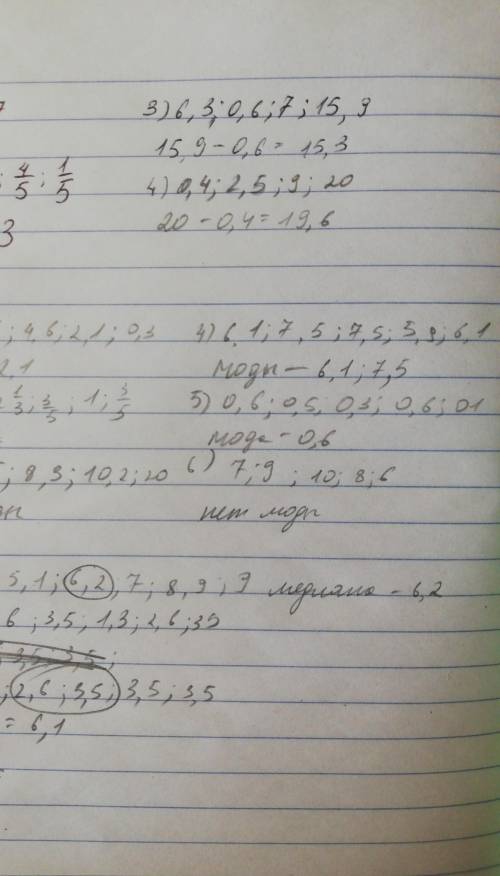 3) 6,3; 0,6; 7; 15,9
15,9 - 0,6 = 15,3
; 4/5 ; 1/5
4) 0,4; 2,5; 9; 20
3
20 - 0,4 = 19,6
; 4,6; 2,1; 0,3
4) 6,1; 7,5; 7,5; 5,9; 6,1
2,1
моды - 6,1; 7,5
1/3; 3/5; 1; 3/5
5) 0,6; 0,5, 0,3; 0,6; 01
мода - 0,6
; 8,3; 10,2; 20
6) 7; 9; 10; 8; 6
нет моды
5,1; 6,2, 7; 8,9; 9 медиана - 6,2
6; 3,5; 1,3; 2,6; 35
3,5; 3,5;
; 2,6; 3,5; 3,5; 3,5
= 6,1